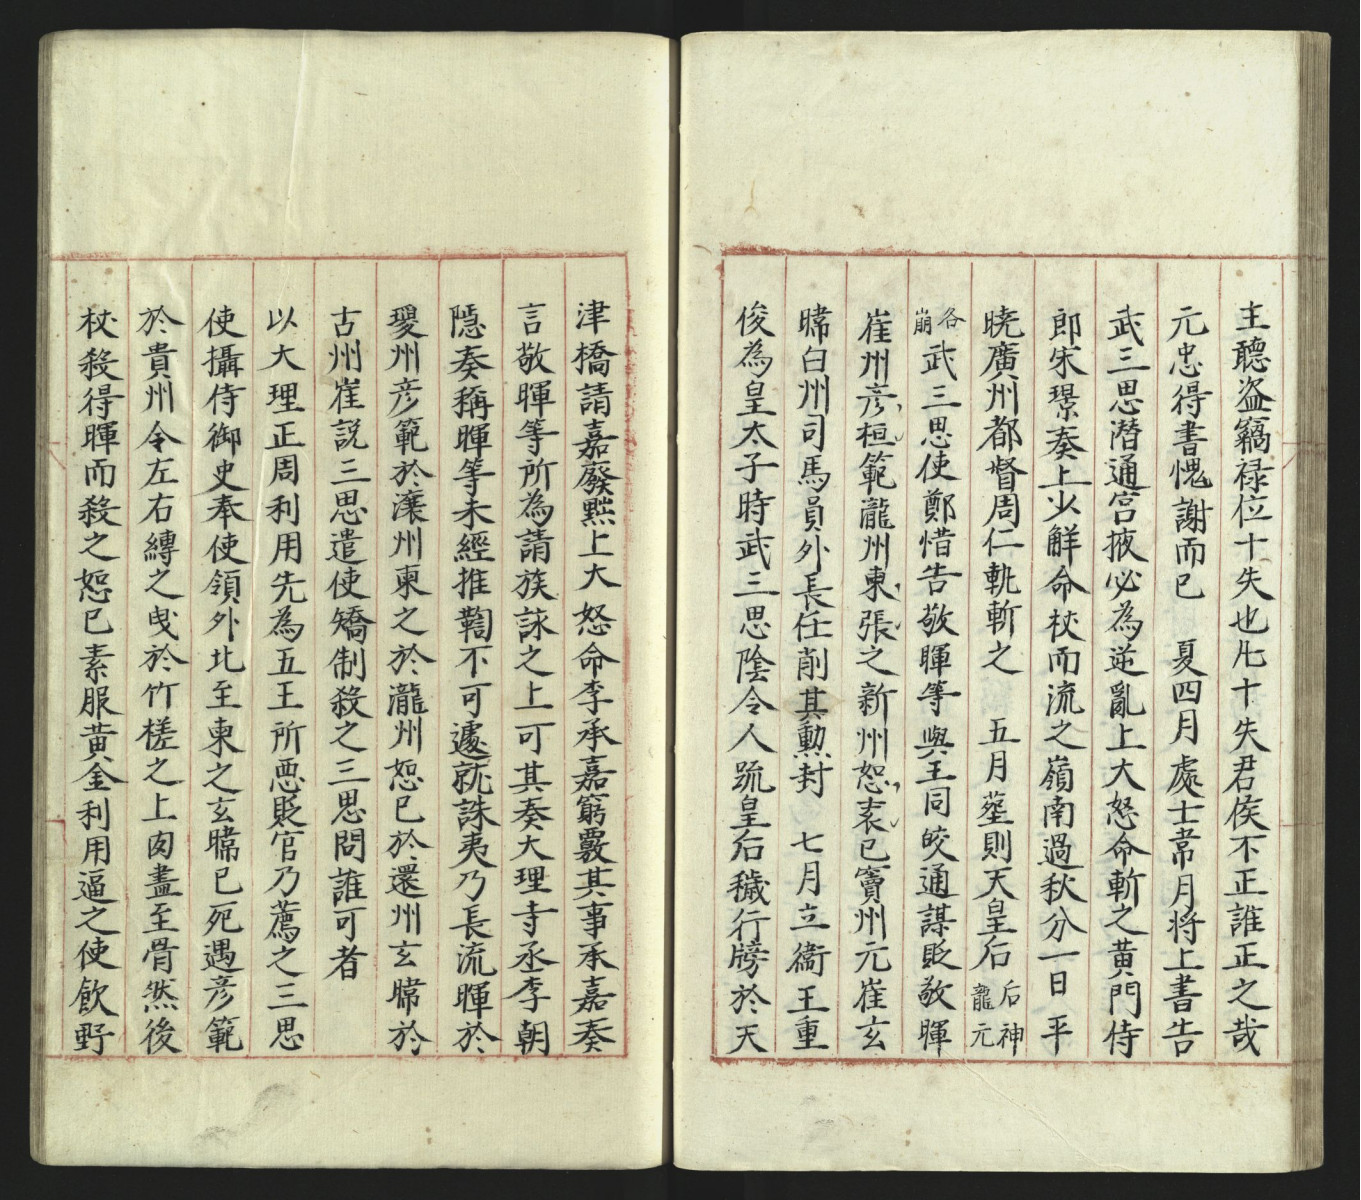 王聽盗竊禄位十失也凢十失君侯不正誰正之哉
元忠得書愧謝而已　夏四月處士韋月将上書告
武三思潜通宫掖必為逆亂上大怒命斬之黄門侍
郎宋璟奏上少觧命杖而流之嶺南過秋分一日平
暁廣州都督周仁軌斬之　五月葬則天皇后后神龍元
各崩武三思使鄭愔告敬暉等與王同皎通謀貶敬暉
崔州彦桓範瀧州柬張之新州恕袁已竇州元崔玄
暐白州司馬員外長任削其勲封　七月立衞王重
俊為皇太子時武三思陰令人疏皇后穢行牓於天
津橋請嘉廢黜上大怒命李承嘉窮覈其事承嘉奏
言敬暉等所為請族誅之上可其奏大理寺丞李朝
隠奏稱暉等未經推鞫不可遽就誅夷乃長流暉於
瓊州彦範於瀼州柬之於瀧州恕已於還州玄暐於
古州崔説三思遣使矯制殺之三思問誰可者
以大理正周利用先為五王所悪貶官乃薦之三思
使攝侍御史奉使領外比至柬之玄暐已死遇彦範
於貴州令左右縛之曵於竹槎之上肉盡至骨然後
杖殺得暉而殺之恕已素服黄金利用逼之使飲野